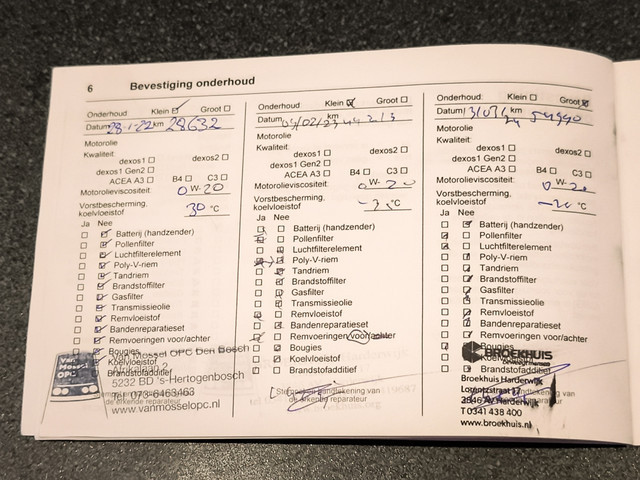 6 Bevestiging onderhoud
Onderhoud Klein Groot
Datum 28-1-22 km 28632
Motorolie
Kwaliteit:
dexos1 dexos2
dexos1 Gen2
ACEA A3 B4 C3
Motorolieviscositeit: 0 W-20
Vorstbescherming, koelvloeistof 30 °C
Ja Nee
Batterij (handzender)
Pollenfilter
Luchtfilterelement
Poly-V-riem
Tandriem
Brandstoffilter
Gasfilter
Transmissieolie
Remvloeistof
Bandenreparatieset
Remvoeringen voor/achter
Bougies
Koelvloeistof
Brandstofadditief
Van Mossel OPC Den Bosch
Afrikalaan 2
5232 BD 's-Hertogenbosch
Tel. 073-6463463
www.vanmosselopc.nl
Onderhoud Klein Groot
Datum km
Motorolie
Kwaliteit:
dexos1 dexos2
dexos1 Gen2
ACEA A3 B4 C3
Motorolieviscositeit: 0 W-20
Vorstbescherming, koelvloeistof °C
Ja Nee
Batterij (handzender)
Pollenfilter
Luchtfilterelement
Poly-V-riem
Tandriem
Brandstoffilter
Gasfilter
Transmissieolie
Remvloeistof
Bandenreparatieset
Remvoeringen voor/achter
Bougies
Koelvloeistof
Brandstofadditief
Stempel en handtekening van
de erkende reparateur
Onderhoud Klein Groot
Datum km
Motorolie
Kwaliteit:
dexos1 dexos2
dexos1 Gen2
ACEA A3 B4 C3
Motorolieviscositeit: 0 W-20
Vorstbescherming, koelvloeistof °C
Ja Nee
Batterij (handzender)
Pollenfilter
Luchtfilterelement
Poly-V-riem
Tandriem
Brandstoffilter
Gasfilter
Transmissieolie
Remvloeistof
Bandenreparatieset
Remvoeringen voor/achter
Bougies
BROEKHUIS
Brandstofadditief
Broekhuis Harderwijk
Lorentzstraat
Harderwijk
T 0341 438 400
www.broekhuis.nl